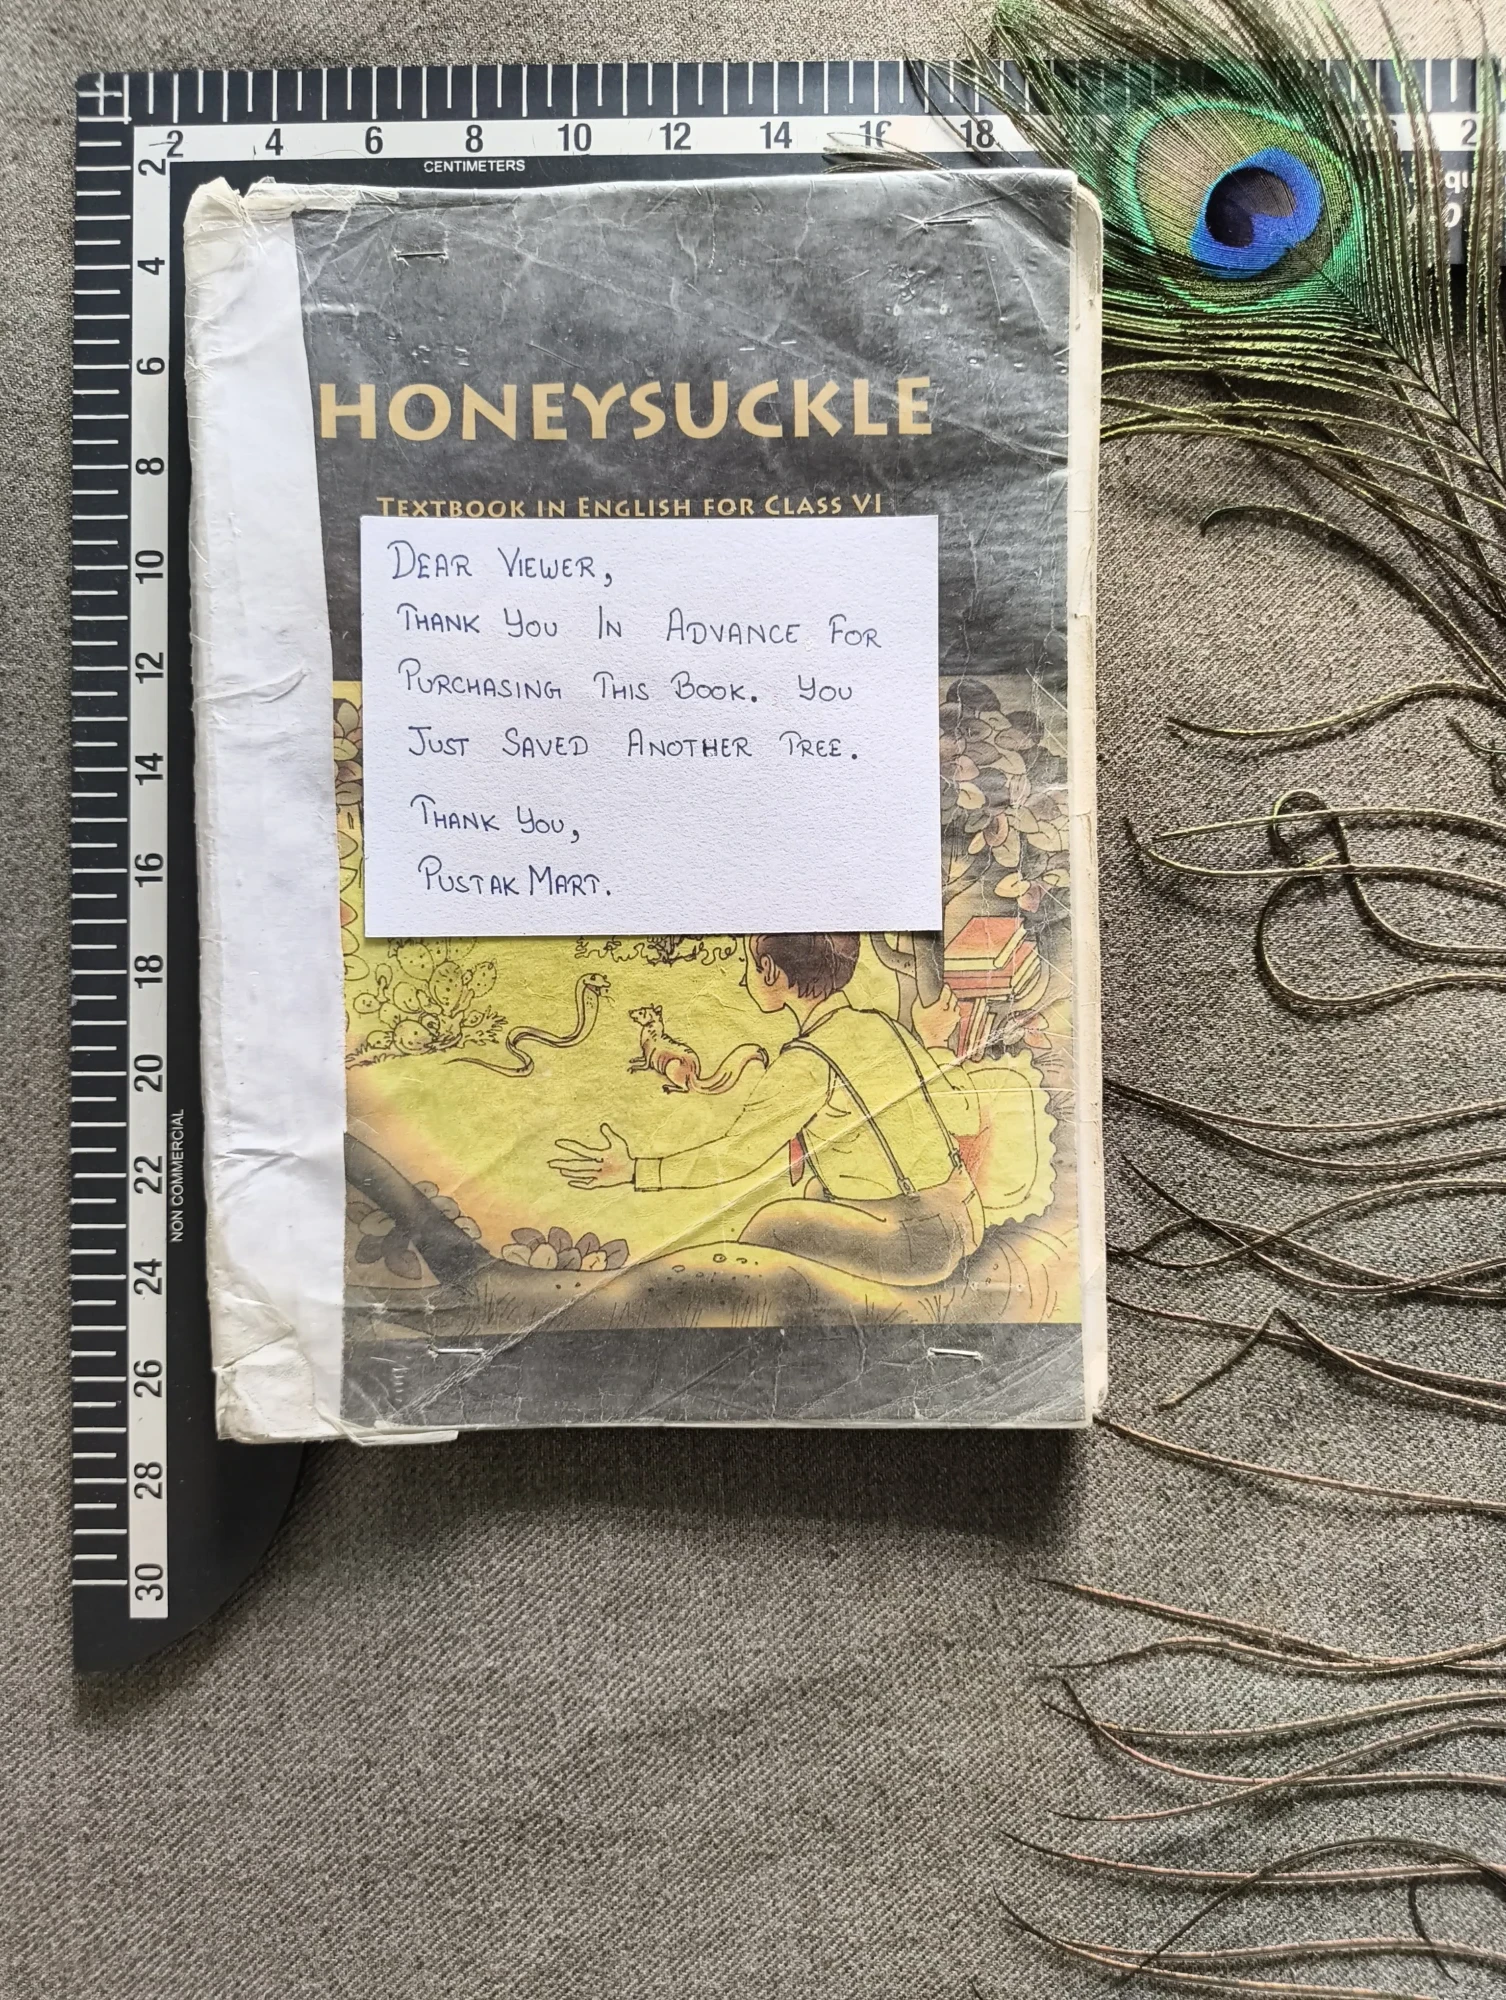 2 4 6 8 10 12 14 16 18
CENTIMETERS
2
4
6
8
10
12
14
16
18
20
22
24
26
28
30
NON COMMERCIAL
HONEYSUCKLE
TEXTBOOK IN ENGLISH FOR CLASS VI
DEAR VIEWER,
THANK YOU IN ADVANCE FOR
PURCHASING THIS BOOK. YOU
JUST SAVED ANOTHER TREE.
THANK YOU,
PUSTAK MART.